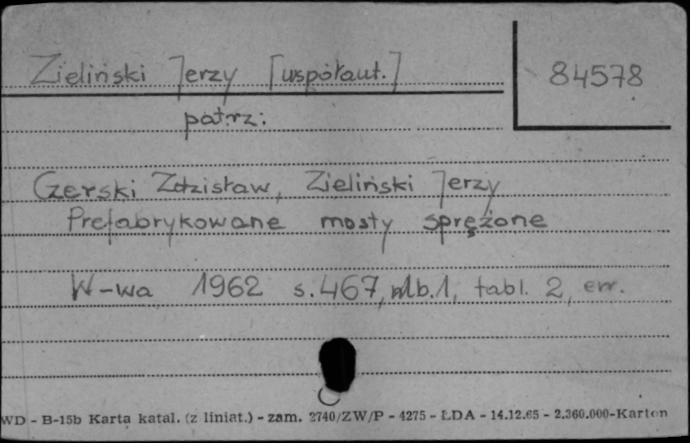 Zieliński Jerzy [współaut.]
84578
patrz:
Czerski Zdzisław, Zieliński Jerzy
Prefabrykowane mosty sprężone
W-wa 1962 s. 467, nlb. 1, tabl. 2, err.
WD - B-15b Karta katal. (z liniat.) - zam. 2740/ZW/P - 4275 - ŁDA - 14.12.65 - 2.360.000-Karton